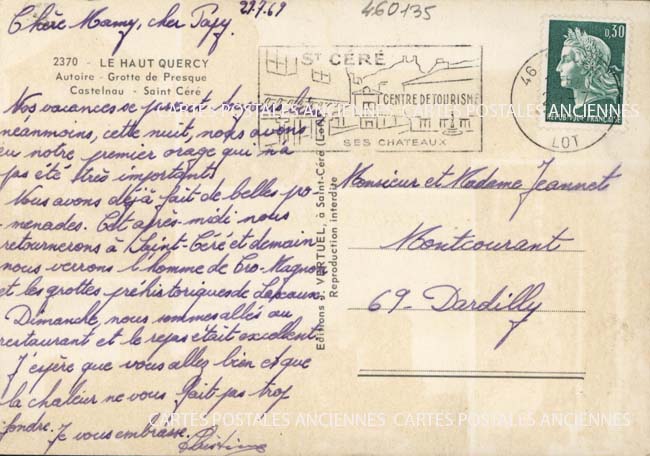 29.7.69
460135
Chère Mamy, cher Papy
2370 - LE HAUT QUERCY
Autoire - Grotte de Presque
Castelnau - Saint Céré
Nos vacances se
néanmoins, cette nuit, nous avons
eu notre premier orage qui n'a
pas été très important.
Nous avons déjà fait de belles pro-
menades. Cet après-midi nous
retournerons à Saint-Céré et demain
nous verrons l'homme de Cro-Magnon
et les grottes préhistoriques de Lascaux.
Dimanche, nous sommes allés au
restaurant et le repas était excellent.
J'espère que vous allez bien et que
la chaleur ne vous fait pas trop
fondre. Je vous embrasse.
Christine
Editions S. VERTUEL, à Saint-Céré (Lot)
Reproduction interdite
ST CÉRÉ
CENTRE DE TOURISME
SES CHATEAUX
0,30
REPUBLIQUE FRANÇAISE
46
LOT
Monsieur et Madame Jeannet
Montcourant
69 - Dardilly
CARTES POSTALES ANCIENNES CARTES POSTALES ANCIENNES
CARTES POSTALES ANCIENNES CARTES POSTALES ANCIENNES